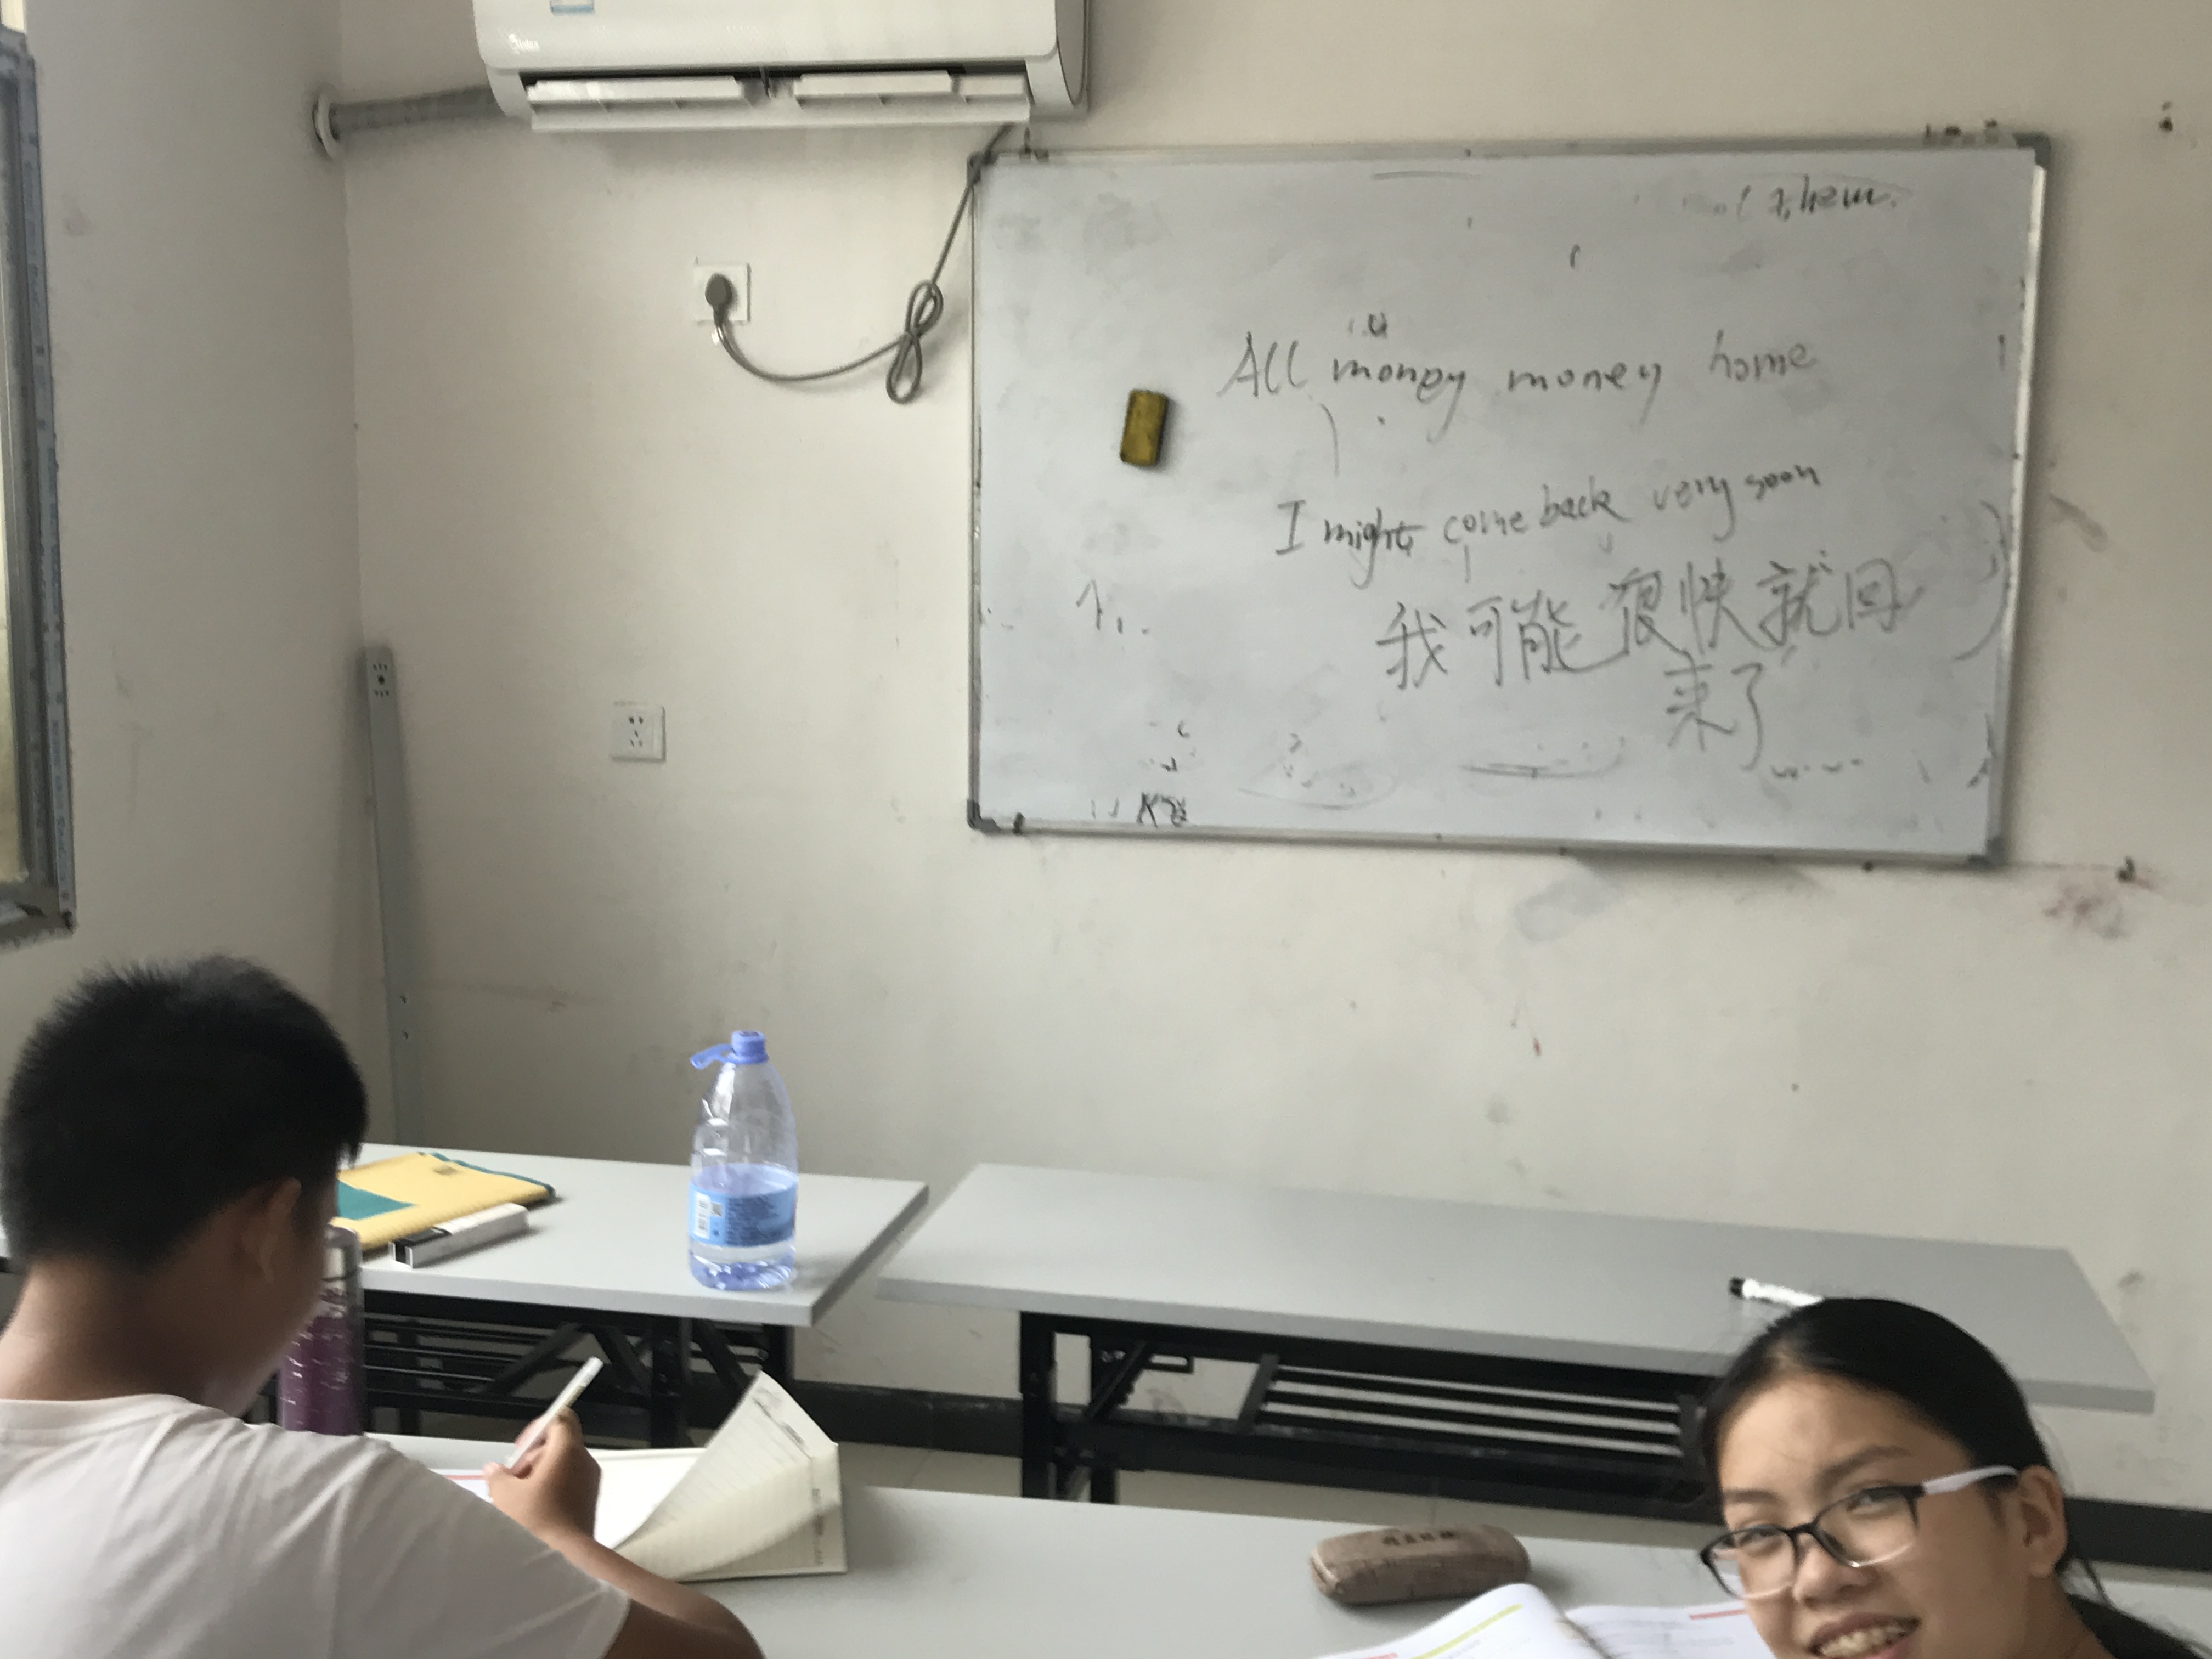 them.
All money money home
I might come back very soon
我可能很快就回
来了